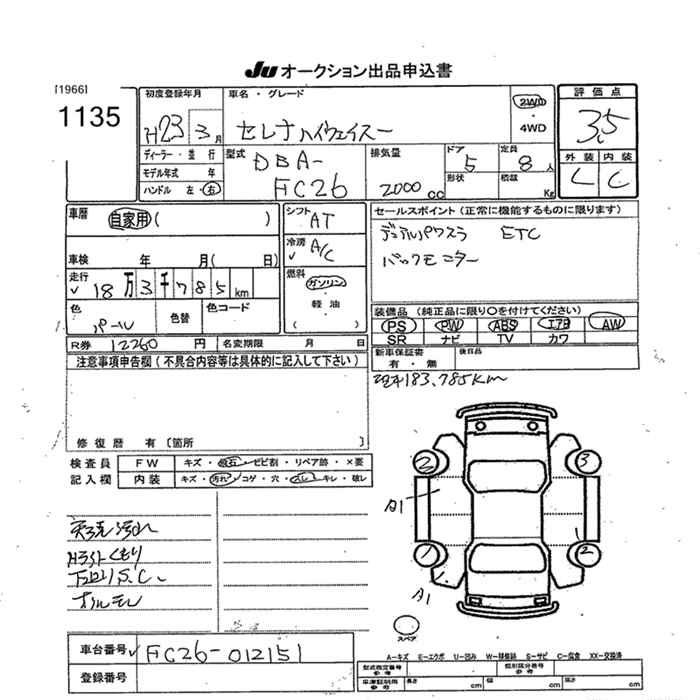 Ju オークション出品申込書
[1966]
1135
初度登録年月
H23 3月
車名・グレード
セレナ ハイウェイスター
2WD
・
4WD
評価点
3.5
外装 内装
C C
ディーラー・並行
モデル年式 年
ハンドル 左・右
型式
DBA-
FC26
排気量
2000 cc
ドア
5
形状
定員
8人
積載
Kg
車歴
自家用 ( )
車検 年 月( 日)
走行
18万3千785km
色
パール
色替
色コード
シフト
AT
冷房
A/C
燃料
ガソリン
・
軽油
( )
セールスポイント(正常に機能するものに限ります)
デュアルパワスラ ETC
バックモニター
装備品(純正品に限り○を付けてください)
PS PW ABS エアB AW
SR ナビ TV カワ
R券 12260 円 名変期限 月 日
新車保証書
有・無
後日品
注意事項申告欄(不具合内容等は具体的に記入して下さい)
183,785km
修復歴 有〔箇所 〕
検査員 FW キズ・飛石・ヒビ割・リペア跡・×要
記入欄 内装 キズ・汚れ・コゲ・穴・スレ・キレ・破レ
2
3
A1
1
2
A1
H.ライトくもり
下回りS.C.
オイルモレ
スペア
A−キズ E−エクボ U−凹み W−補修跡 S−サビ C−腐食 XX−交換済
車台番号 FC26-012151
登録番号
型式指定番号
参考
類別区分番号
参考
車庫証明用
参考
長さ cm 幅 cm 高さ cm